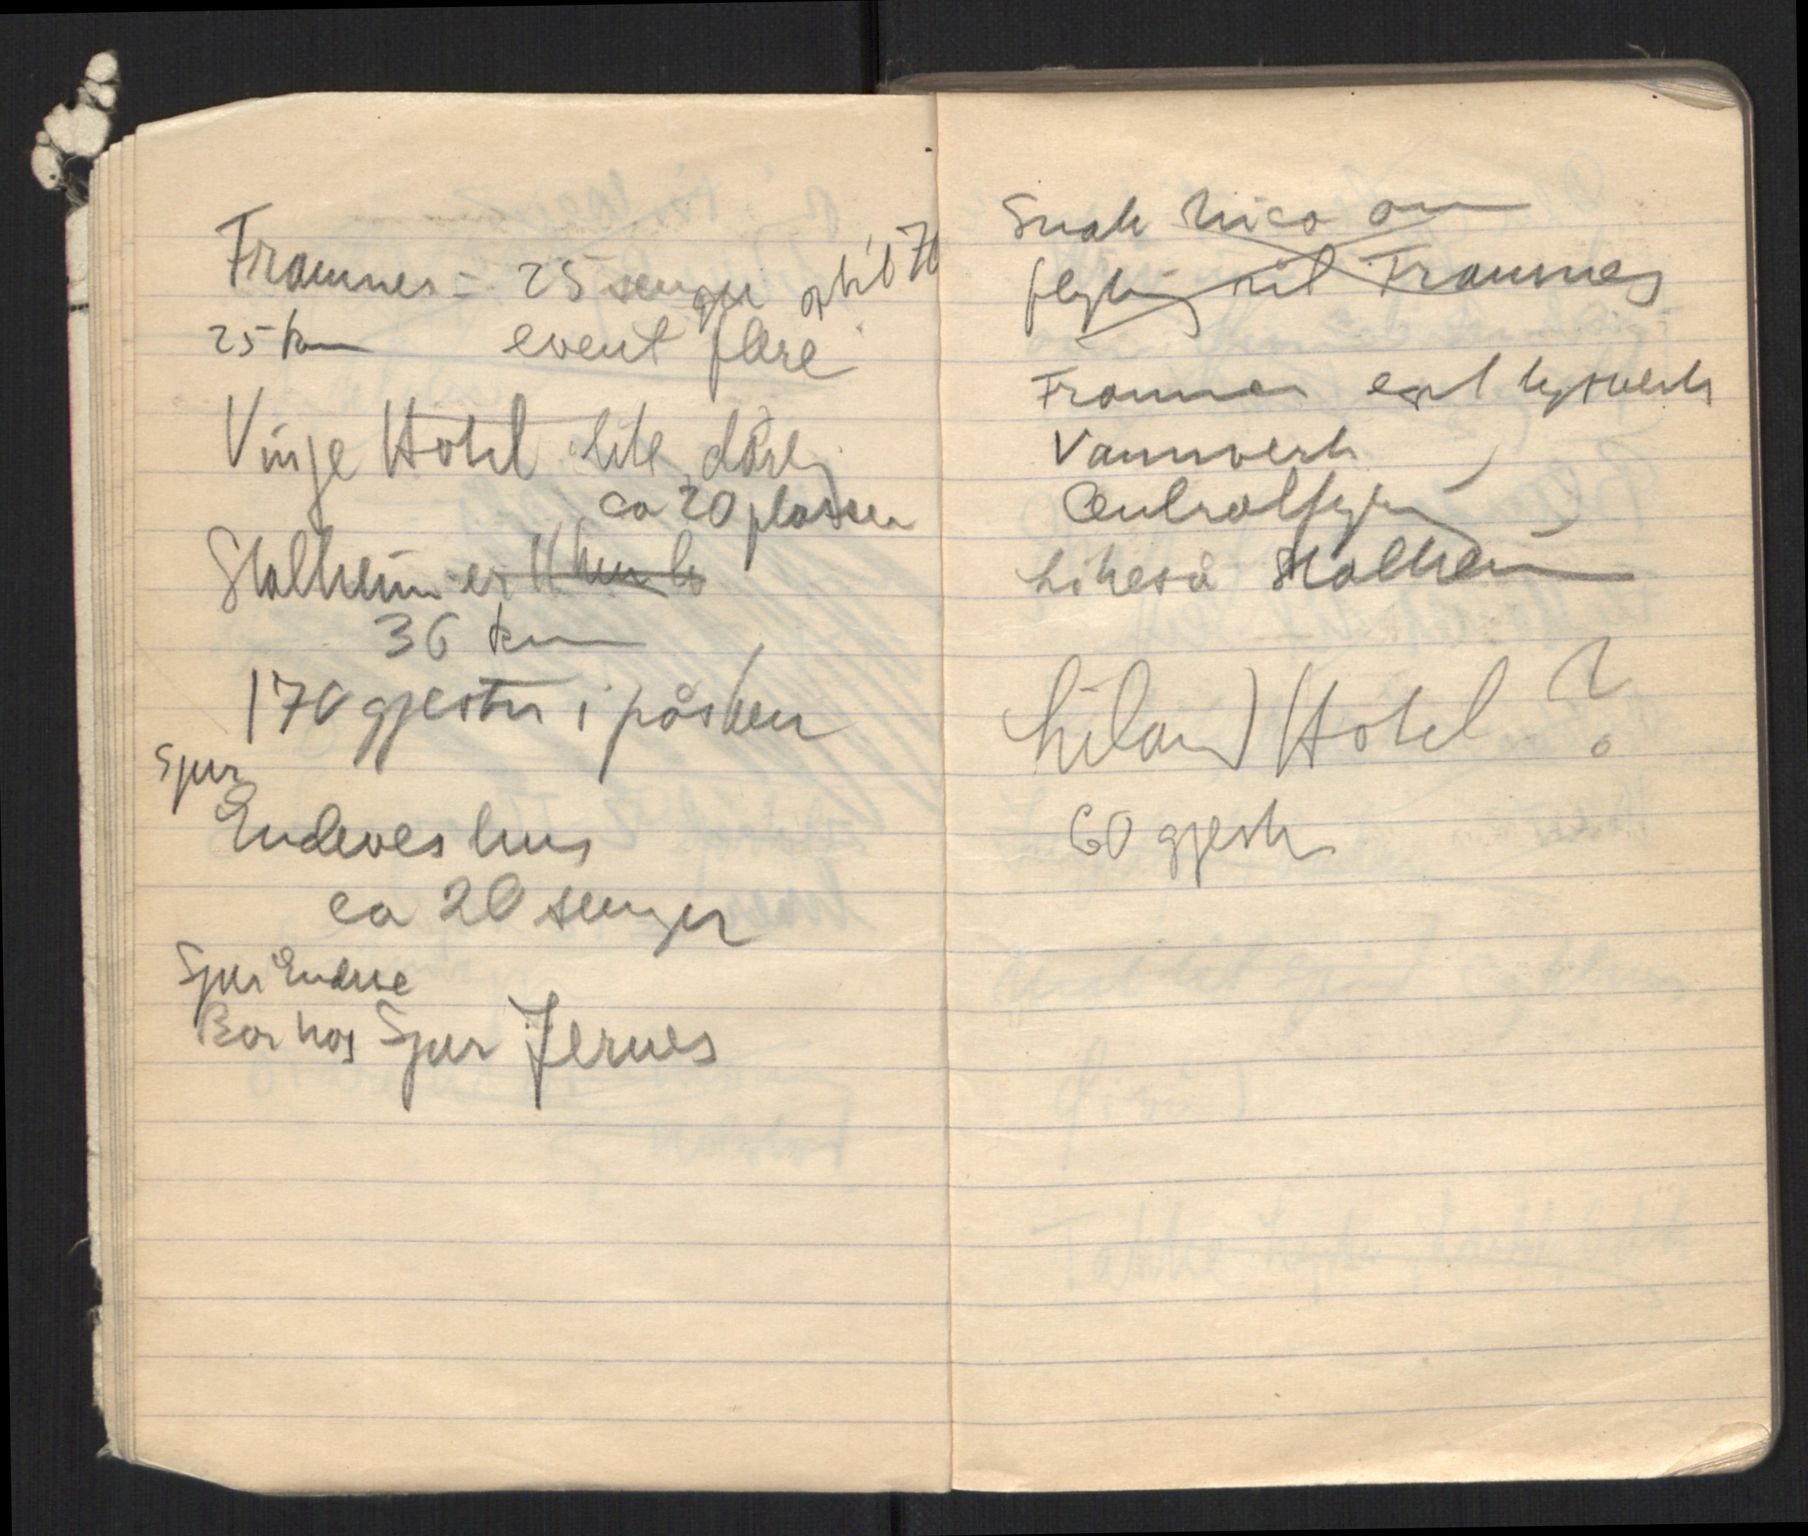 Framnes = 25 senger optil 70
25 km event flere
Vinje Hotel lite dårlig
ca 20 plasser
Stalheim er
36 km
170 gjester i påsken
Spør
Endeves hus
ca 20 senger
Spør Endeve
Bor hos Sjur Jernes
Snak Nico om
flyging til Framnes
Framnes eget lysverk
Vannverk
Centralfyr
Likeså Stalheim
Liland Hotel ?
60 gjester